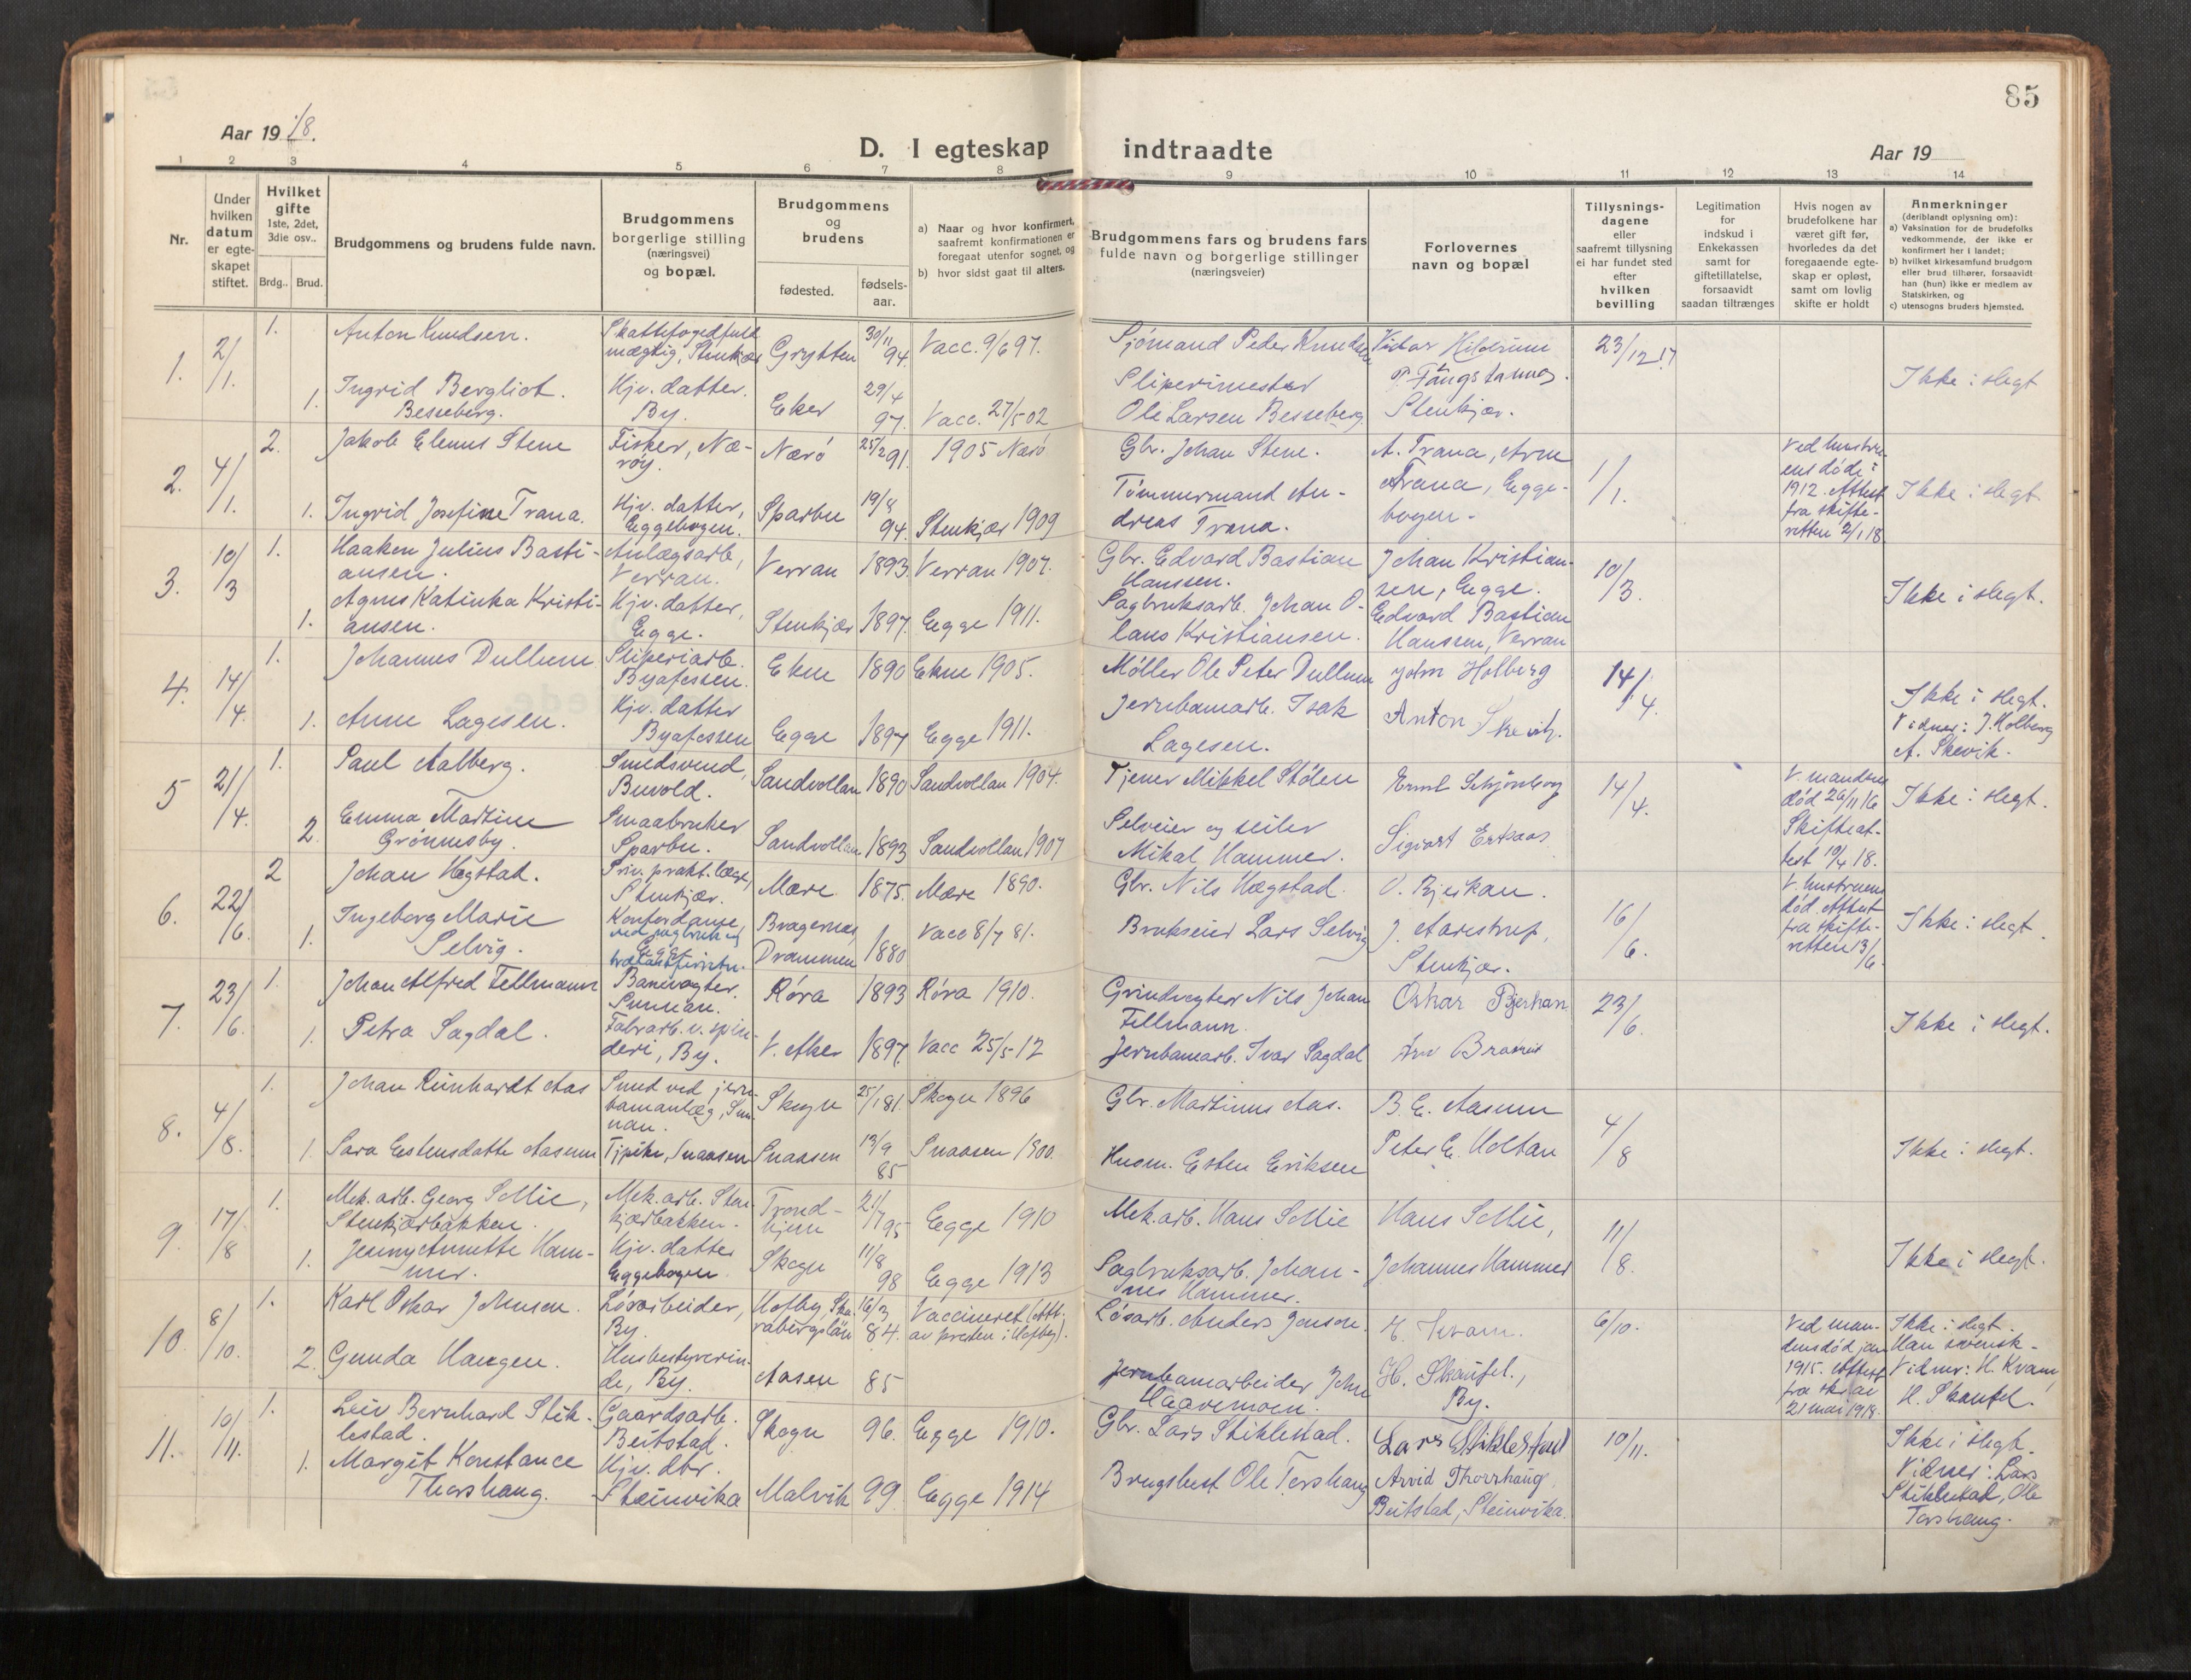 85
Aar 19 18.
D. I egteskap indtraadte
Aar 19
1 2 3 4 5 6 7 8 9 10 11 12 13 14
Nr.
Under hvilken datum er egteskapet stiftet.
Hvilket gifte 1ste, 2det, 3die osv..
Brdg.. Brud.
Brudgommens og brudens fulde navn.
Brudgommens borgerlige stilling (næringsvei) og bopæl.
Brudgommens og brudens
fødested.
fødselsaar.
a) Naar og hvor konfirmert, saafremt konfirmationen er foregaat utenfor sognet, og
b) hvor sidst gaat til alters.
Brudgommens fars og brudens fars fulde navn og borgerlige stillinger (næringsveier)
Forlovernes navn og bopæl
Tillysningsdagene eller saafremt tillysning ei har fundet sted efter hvilken bevilling
Legitimation for indskud i Enkekassen samt for giftetillatelse, forsaavidt saadan tiltrænges
Hvis nogen av brudefolkene har været gift før, hvorledes da det foregaaende egteskap er opløst, samt om lovlig skifte er holdt
Anmerkninger (deriblandt oplysning om):
a) Vaksination for de brudefolks vedkommende, der ikke er konfirmert her i landet;
b) hvilket kirkesamfund brudgom eller brud tilhører, forsaavidt han (hun) ikke er medlem av Statskirken, og
c) utensogns bruders hjemsted.
1. 2/1. 1. Anton Knudsen. Skattefogedfuldmægtig, Stenkjær Grytten 30/11 94. Vacc. 9/6 97. Sjømand Peder Knudsen Vidar Hildrum 23/12 17
1. Ingrid Bergliot Besseberg. Hjv. datter. By. Eker 29/4 97. Vacc. 27/5 02 Sliperimester Ole Larsen Besseberg Stenkjær. Ikke i slegt
2. 4/1. 2. Jakob Elenus Stene Fisker, Nærøy. Nærø 25/2 91. 1905 Nærø Gbr. Johan Stene. A. Trana, Arne Trana, Eggebogen. 1/1. Ved hustruens død i 1912. Attest fra skifteretten 2/1 18
1. Ingrid Josefine Trana. Hjv. datter, Eggebogen. Sparbu 19/8 94. Stenkjær 1909 Tømmermand Andreas Trana. Ikke i slegt.
3. 10/3 1. Haakon Julius Bastiansen. Anlægsarb, Verran. Verran 1893. Verran 1907. Gbr. Edvard Bastian Hanssen. Johan Kristiansen, Egge. 10/3.
1. Agnes Katinka Kristiansen. Hjv. datter, Egge. Stenkjær 1897. Egge 1911. Sagbruksarb. Johan Olaus Kristiansen. Edvard Bastian Hanssen, Verran Ikke i slegt.
4. 14/4. 1. Johannes Dullum Sliperiarb. Byafossen. Ekne 1890 Ekne 1905. Møller Ole Peter Dullum John Holberg 14/4.
1. Anne Lagesen. Hjv. datter Byafossen Egge 1897 Egge 1911. Jernbanearb. Isak Lagesen. Anton Skevik. Ikke i slegt. Vidner: J. Holberg A. Skevik.
5 21/4. 1. Paul Aalberg. Smedsvend, Buvold. Sandvollan 1890 Sandvollan 1904. Tjener Mikkel Stølen 14/4. V. mandens død 26/11 16 Skifteattest 10/4 18.
2 Emma Martine Grønnesby. Smaabruker Sparbu. Sandvollan 1893 Sandvollan 1907 Selveier og seiler Mikal Hammer. Sigvart Ertsaas Ikke i slegt.
6. 22/6. 2 Johan Hegstad. Priv. prakt. læge, Stenkjær. Mære 1875. Mære 1890. Gbr. Nils Hegstad. O. Bjerkan. 16/6. V. hustruens død. Attest fra skifteretten 13/6.
1. Ingeborg Marie Selvig. Kontordame ved sagbruk Egge Bragernæs, Drammen 1880 Vacc 8/7 81. Brukseier Lars Selvig J. Aarestrup, Stenkjær. Ikke i slegt.
7. 23/6. 1. Johan Alfred Fellmann Banevogter. Sunnan. Røra 1893 Røra 1910. Grindvogter Nils Johan Fellmann. Oskar Bjerkan 23/6.
1. Petra Sagdal. Fabrarb. v. spinderi, By. V. Aker 1897. Vacc 25/5 12 Jernbanearb. Ivar Sagdal Ikke i slegt.
8. 4/8. 1. Johan Reinhardt Aas Smed ved jernbaneanlæg, Sunnan. Skogn 25/1 81. Skogn 1896 Gbr. Martinus Aas. B. E. Aasum 4/8
1. Sara Estensdatte Aasum Tjpike, Snaasen Snaasen 13/9 85 Snaasen 1900. Husm. Esten Eriksen Peter E. Holtan Ikke i slegt.
9. 17/8 1. Mek. arb. Georg Sollie, Stenkjærbakken. Mek. arb. Stenkjærbakken. Trondhjem 21/7 95 Egge 1910 Mek. arb. Hans Sollie Hans Sollie, 11/8.
1. Jenny Annette Hammer. Hjv. datter Eggebogen Skogn 11/8 98 Egge 1913 Sagbruksarb. Johannes Hammer. Johannes Hammer Ikke i slegt.
10. 8/10. 1. Karl Oskar Johnsen. Løsarbeider, By. Hofby, Skarabergslän 16/3 84. Vaccineret (Att. av presten i Hofby). Løsarb. Anders Jonson. Kvam. 6/10. Ved mandens død jan 1915. Attest fra 21 mai 1918.
2. Gunda Haugen. Husbestyrerinde, By. Aasen 85 Jernbanearbeider John H. Skaufel., By. Ikke i slegt. Han svensk. Vidner: H. Kvam, H. Skaufel.
11. 10/11. 1. Leiv Bernhard Stiklestad. Gaardsarb. Beitstad. Skogn 96. Egge 1910. Gbr. Lars Stiklestad. Lars Stiklestad 10/11.
1. Margit Konstance Thorshaug. Hjv. dtr. Steinvika Malvik 99. Egge 1914 Brugsbest Ole Torshaug Arvid Thorshaug Beitstad, Steinvika. Ikke i slegt. Vidner: Lars Stiklestad, Ole Torshaug.